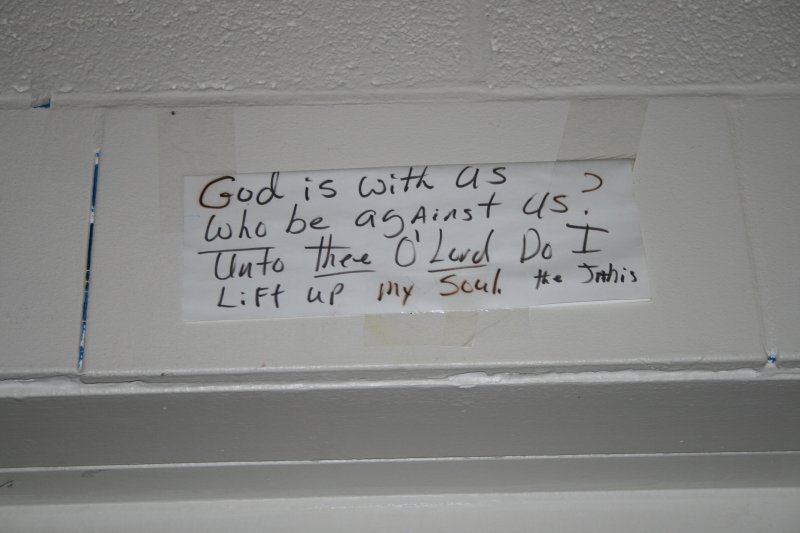 God is with us
Who be against us?
Unto thee O' Lord Do I
Lift up my Soul. the